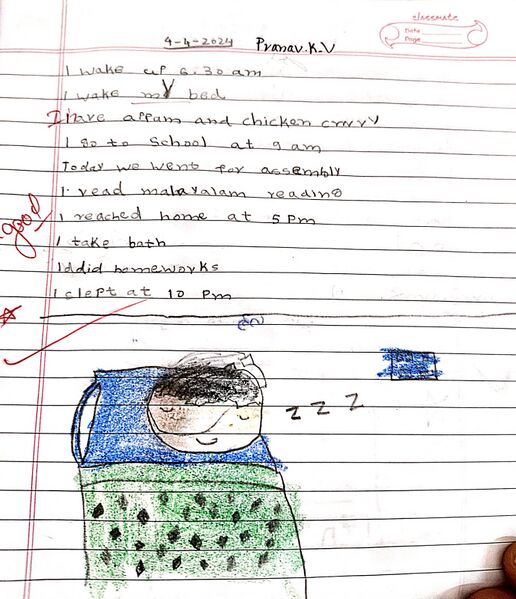 classmate
Date
Page
4-4-2024 Pranav.K.V
I wake up 6.30 am
I wake my bed
I have appam and chicken crrry
I go to School at 9 am
Today we went for assembly
I read malayalam reading
I reached home at 5 Pm
I take bath
I did homeworks
I slept at 10 pm
good
z z z